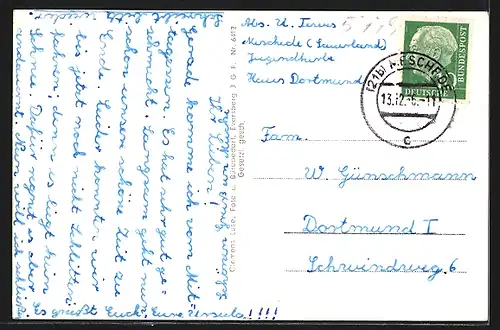 Abs. U.
Meschede (Sauerland)
Jugendherberge
Haus Dortmund
DEUTSCHE BUNDESPOST
(21b) MESCHEDE
c
Fam.
W. Günschmann
Dortmund I
Schwindweg 6
Clemens Luise, Foto u. Bürobedarf, Eversberg J G F Nr. 6413
Gesetzl. gesch.
Ihr Lieben!
Gerade komme ich vom Mit-
tagessen. Es hat sehr gut ge-
schmeckt. Langsam geht nun
schon unsere schöne Zeit zu
Ende. Leider konnten wir
bis jetzt noch nicht Schlitten
fahren, denn es liegt kein
Schnee. Dafür regnet es aber
Nun will ich
Es grüßt Euch Eure Ursula!!!!